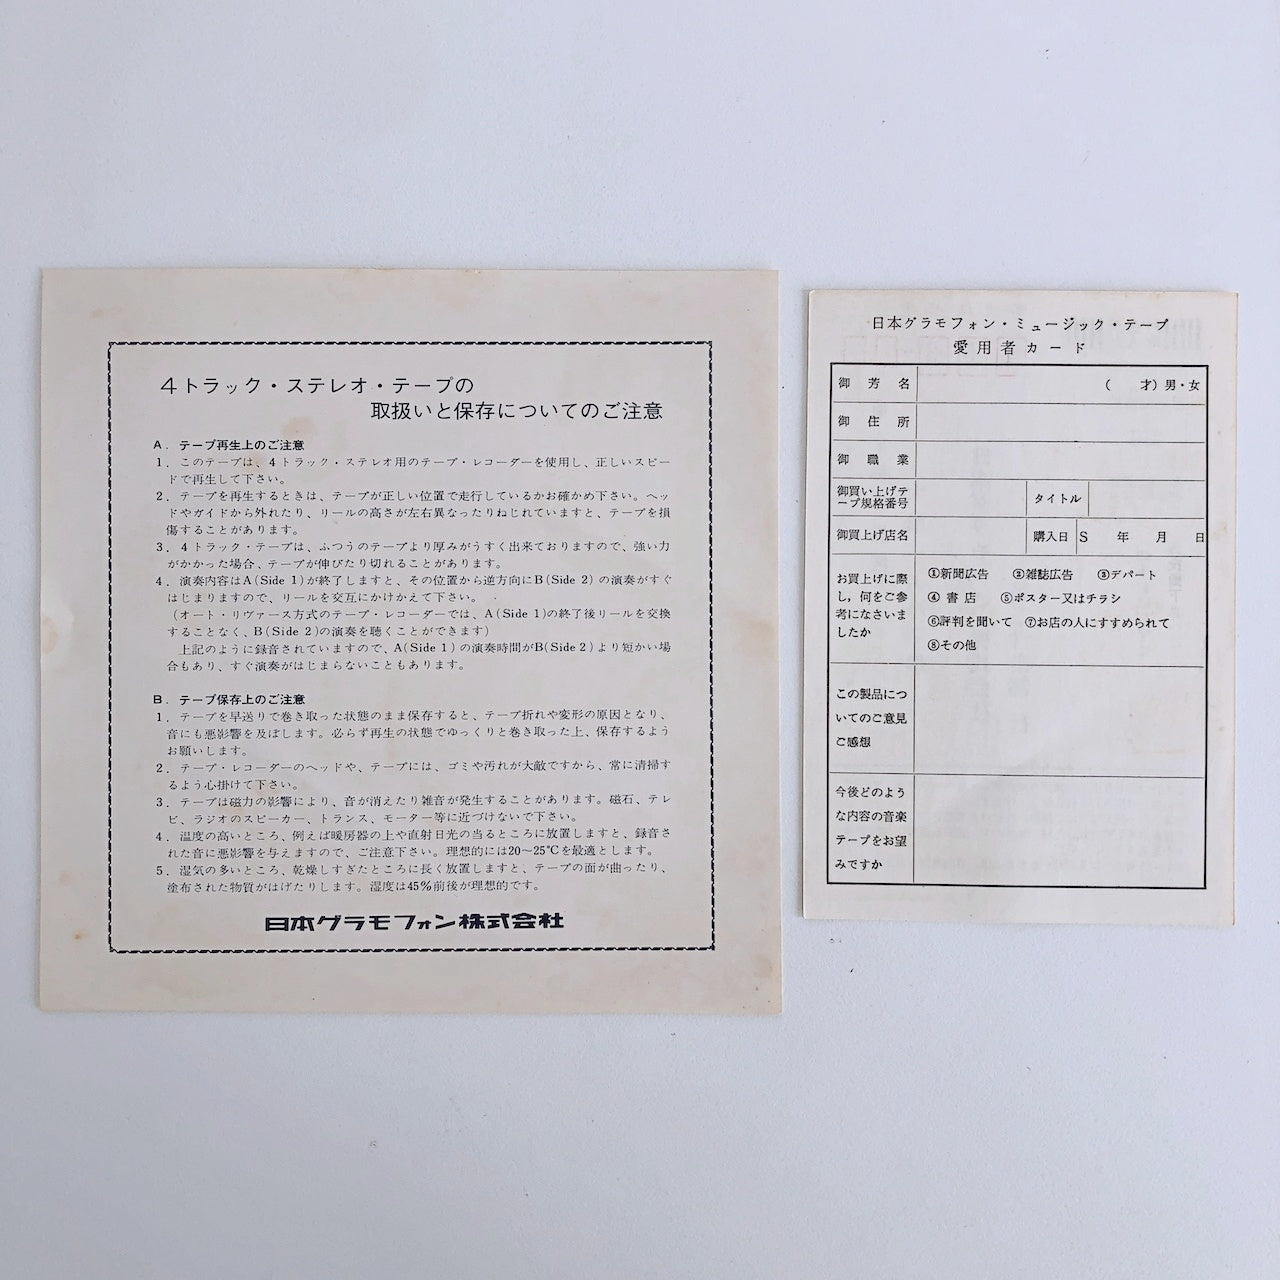 4トラック・ステレオ・テープの
取扱いと保存についてのご注意
A. テープ再生上のご注意
1. このテープは、4トラック・ステレオ用のテープ・レコーダーを使用し、正しいスピー
ドで再生して下さい。
2. テープを再生するときは、テープが正しい位置で走行しているかお確かめ下さい。ヘッ
ドやガイドから外れたり、リールの高さが左右異なったりねじれていますと、テープを損
傷することがあります。
3. 4トラック・テープは、ふつうのテープより厚みがうすく出来ておりますので、強い力
がかかった場合、テープが伸びたり切れることがあります。
4. 演奏内容はA(Side 1)が終了しますと、その位置から逆方向にB(Side 2)の演奏がすぐ
はじまりますので、リールを交互にかけかえて下さい。
(オート・リヴァース方式のテープ・レコーダーでは、A(Side 1)の終了後リールを交換
することなく、B(Side 2)の演奏を聴くことができます)
上記のように録音されていますので、A(Side 1)の演奏時間がB(Side 2)より短かい場
合もあり、すぐ演奏がはじまらないこともあります。
B. テープ保存上のご注意
1. テープを早送りで巻き取った状態のまま保存すると、テープ折れや変形の原因となり、
音にも悪影響を及ぼします。必らず再生の状態でゆっくりと巻き取った上、保存するよう
お願いします。
2. テープ・レコーダーのヘッドや、テープには、ゴミや汚れが大敵ですから、常に清掃す
るよう心掛けて下さい。
3. テープは磁力の影響により、音が消えたり雑音が発生することがあります。磁石、テレ
ビ、ラジオのスピーカー、トランス、モーター等に近づけないで下さい。
4. 温度の高いところ、例えば暖房器の上や直射日光の当るところに放置しますと、録音さ
れた音に悪影響を与えますので、ご注意下さい。理想的には20～25℃を最適とします。
5. 湿気の多いところ、乾燥しすぎたところに長く放置しますと、テープの面が曲ったり、
塗布された物質がはげたりします。湿度は45%前後が理想的です。
日本グラモフォン株式会社
日本グラモフォン・ミュージック・テープ
愛用者カード
御芳名 ( 才)男・女
御住所
御職業
御買い上げテ
ープ規格番号 タイトル
御買上げ店名 購入日 S 年 月 日
お買上げに際
し,何をご参
考になさいま
したか
①新聞広告 ②雑誌広告 ③デパート
④書店 ⑤ポスター又はチラシ
⑥評判を聞いて ⑦お店の人にすすめられて
⑧その他
この製品につ
いてのご意見
ご感想
今後どのよう
な内容の音楽
テープをお望
みですか